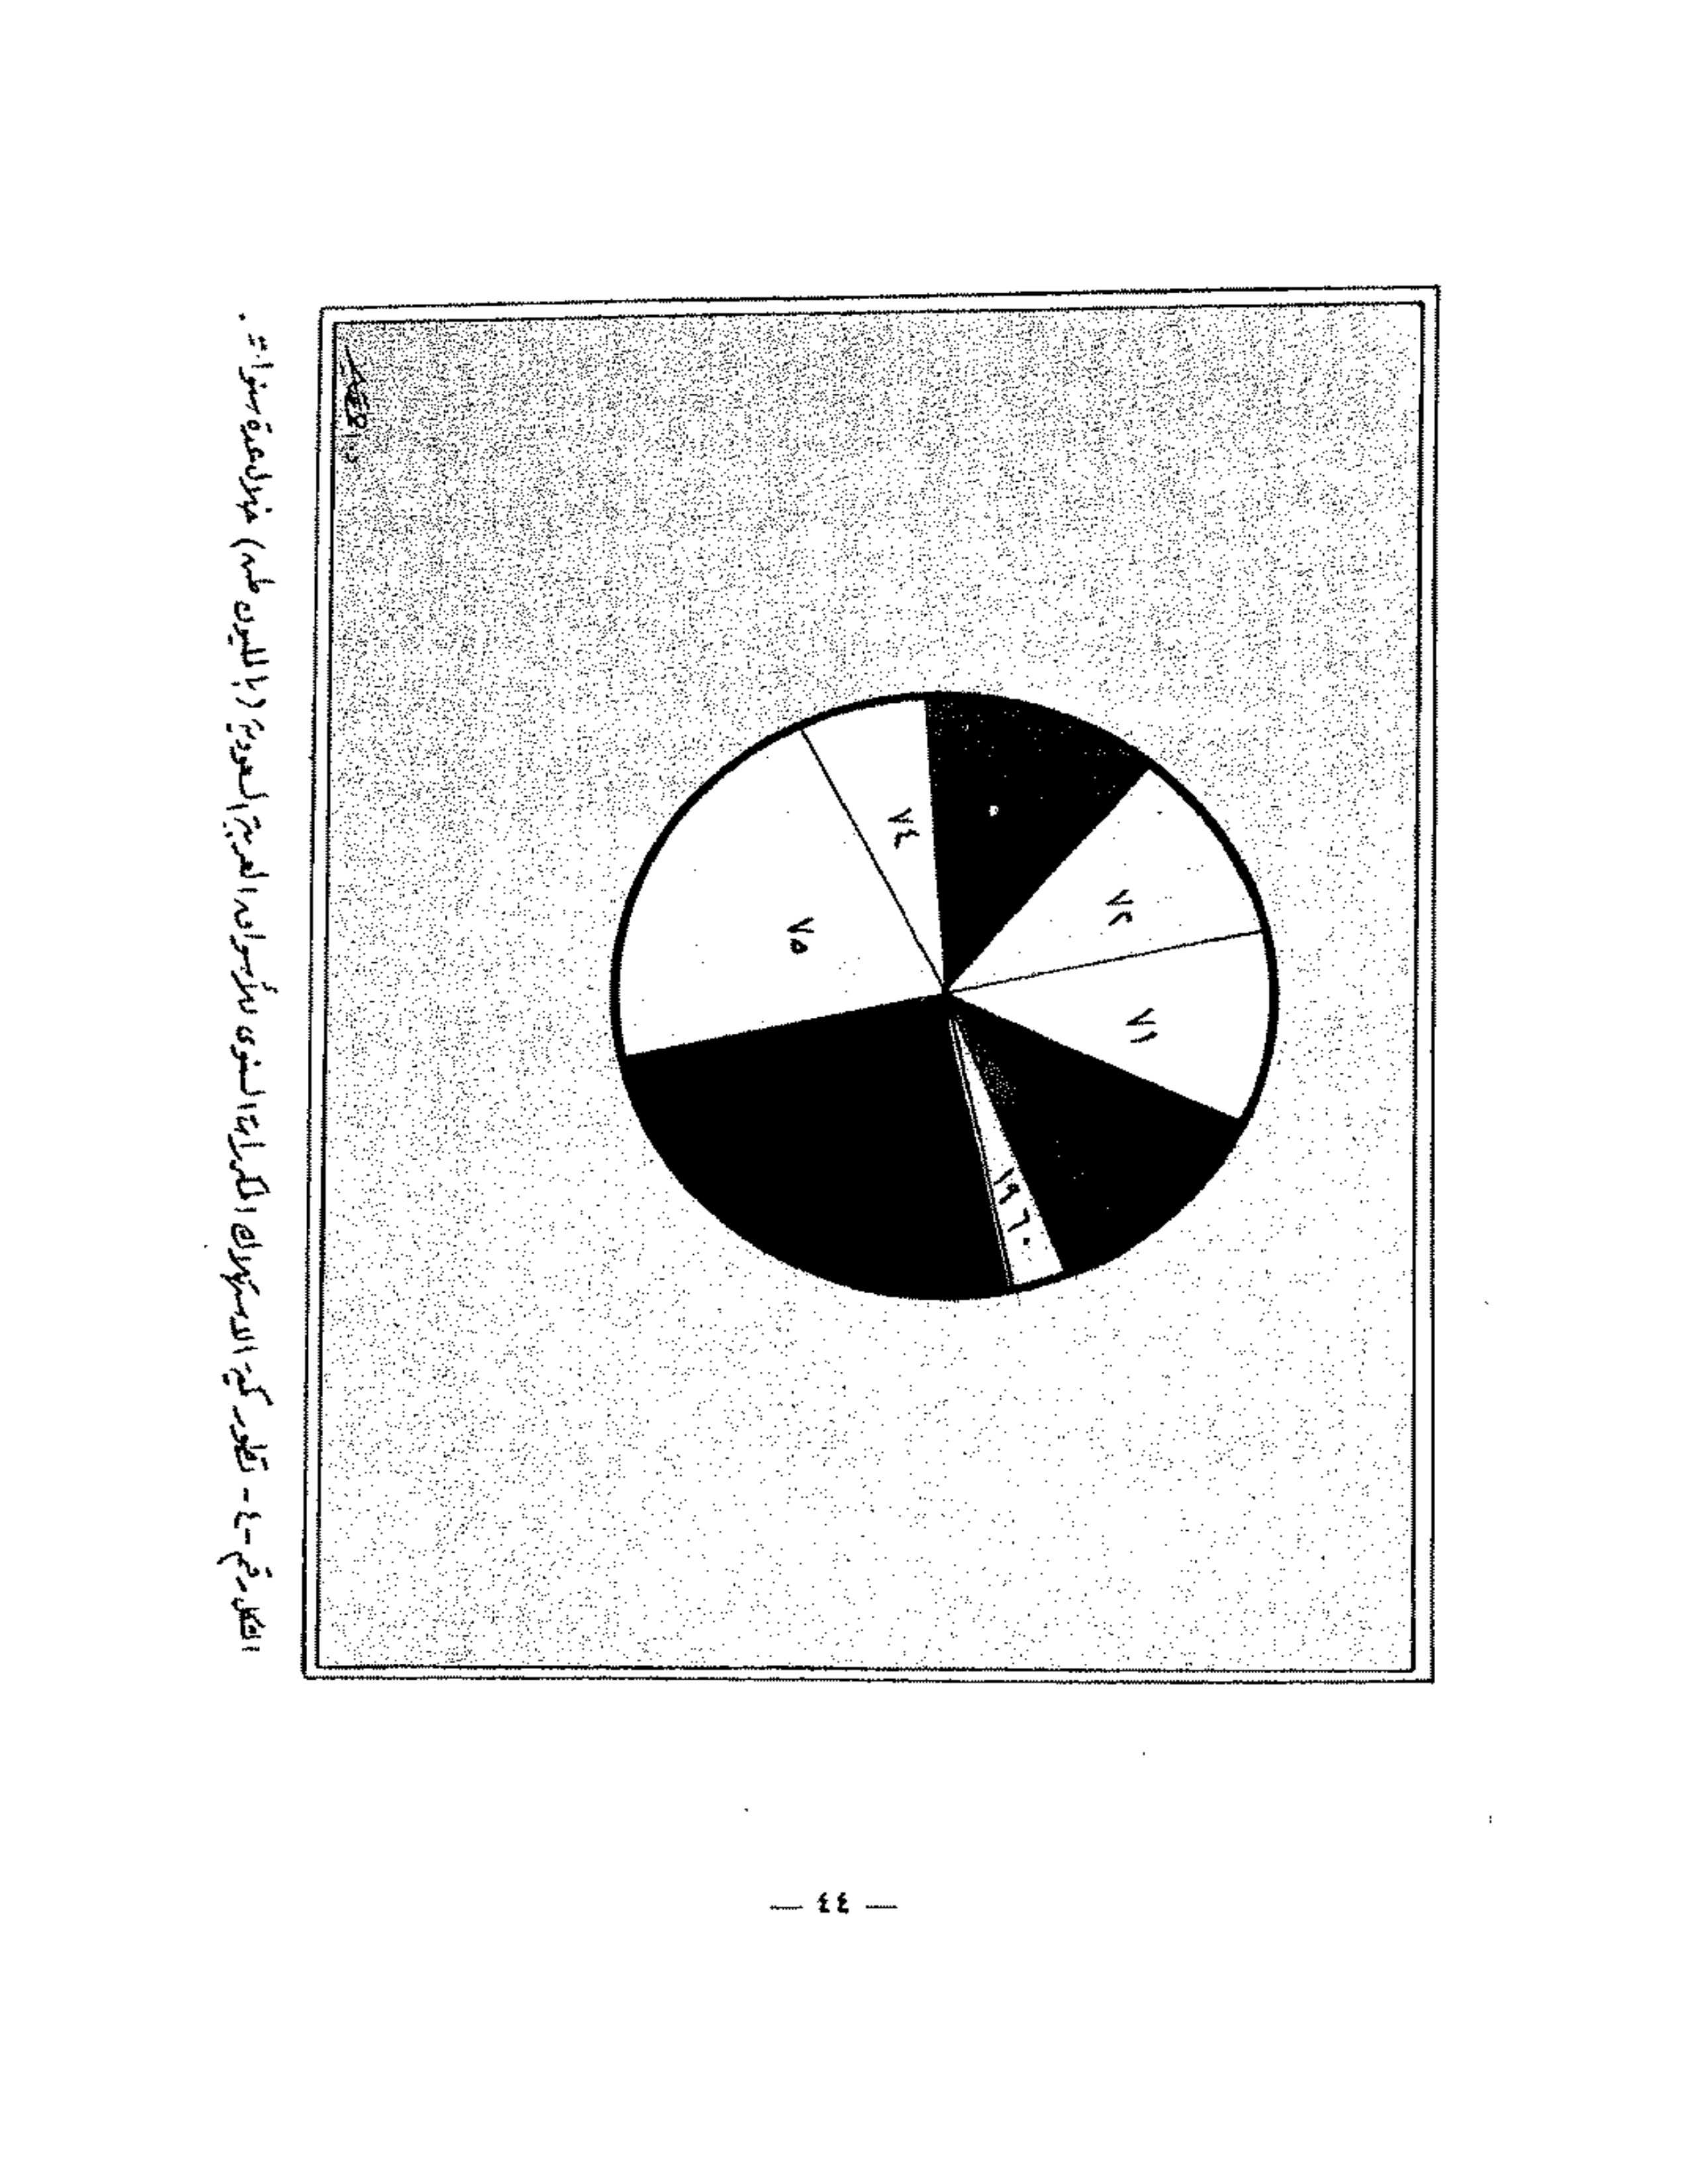 ٧٤
٧٢
٧٥
٧١
١٩٦٠
الشكل رقم -٤- تطور كمية الاستهلاك الكهربائية السنوى للأسواق العربية السعودية (بالمليون طن) خلال عدة سنوات .
— ٤٤ —